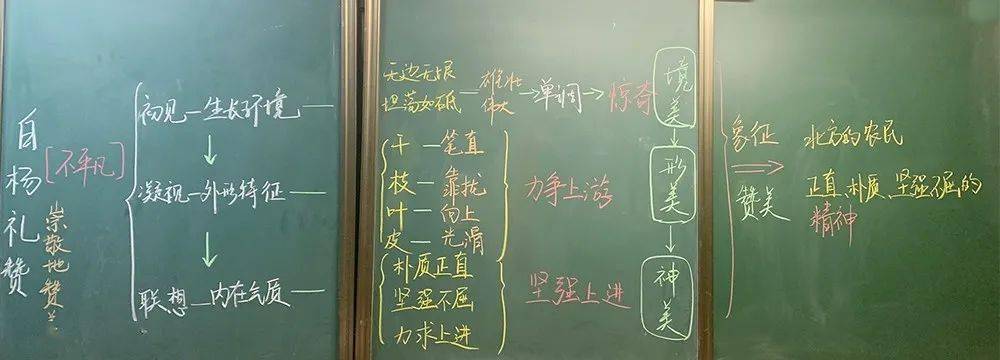 白杨礼赞
崇敬地赞美
[不平凡]
初见—生长环境—
凝视—外形特征—
联想—内在气质—
无边无垠
坦荡如砥
雄壮
伟大
单调
惊奇
干—笔直
枝—靠拢
叶—向上
皮—光滑
力争上游
朴质正直
坚强不屈
力求上进
坚强上进
境美
形美
神美
象征
赞美
北方的农民
正直、朴质、坚强不屈的
精神